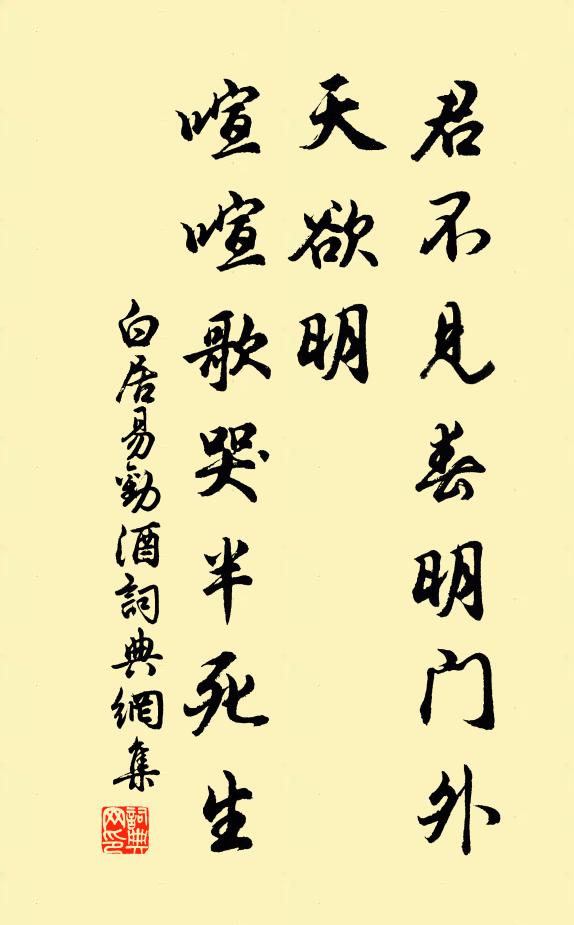 君不見春明門外
天欲明
喧喧歌哭半死生
白居易勸酒詞典網集
詞典
网印